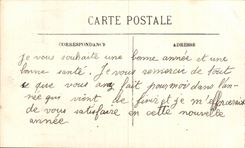 CARTE POSTALE
CORRESPONDANCE
ADRESSE
Je vous souhaite une bonne année et une
bonne santé. Je vous remercie de tout
ce que vous avez fait pour moi dans l'an-
née qui vient de finir et je m'efforcerai
de vous satisfaire en cette nouvelle
année.